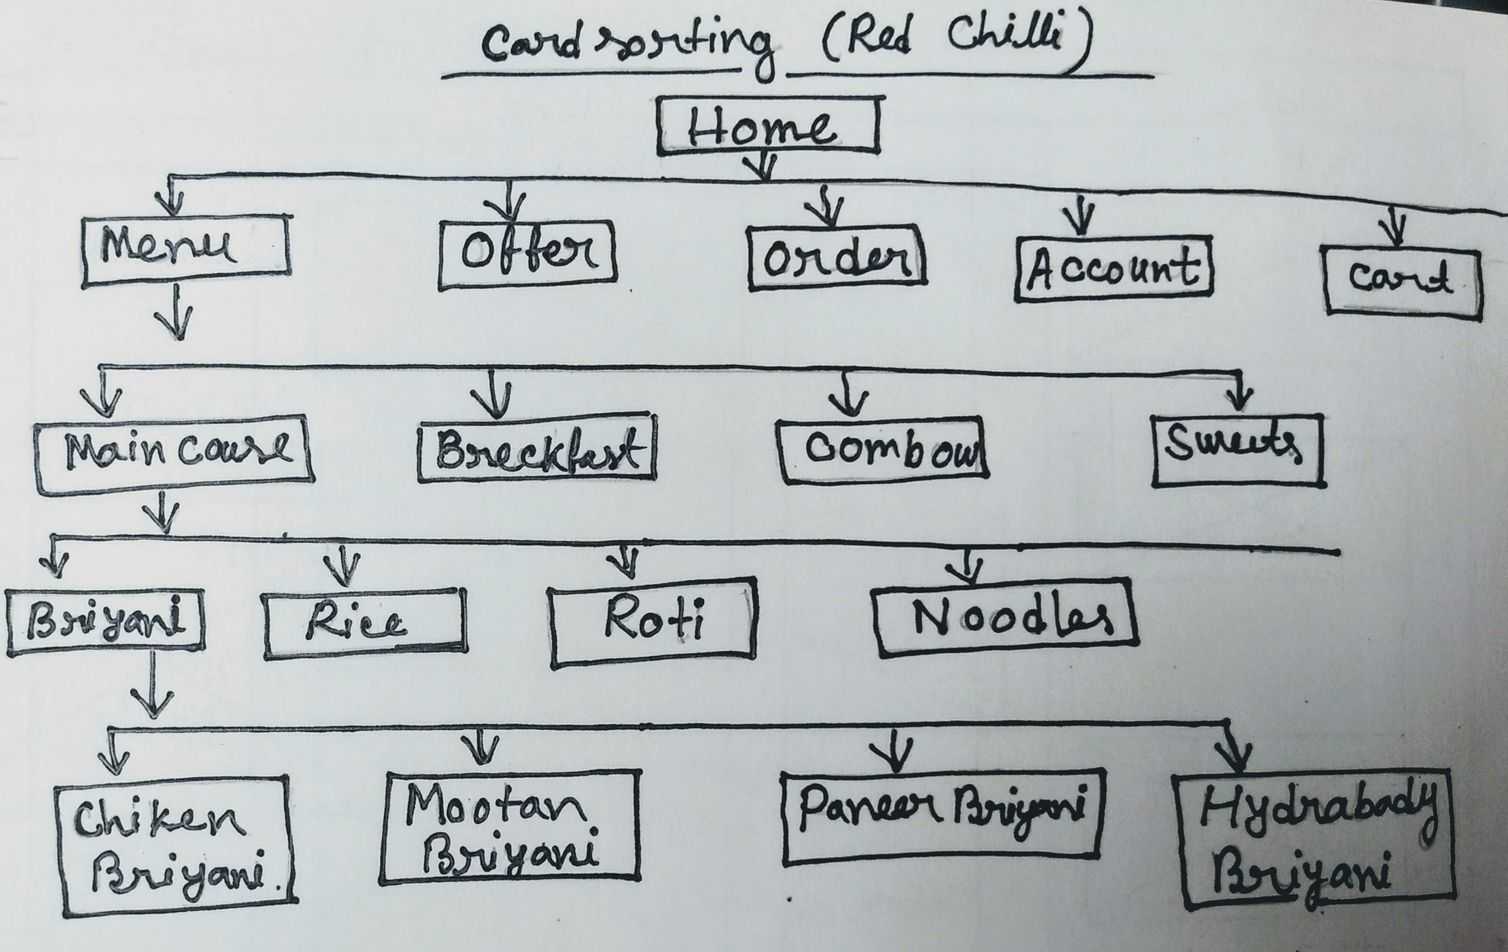 Card sorting (Red Chilli)
Home
Menu
Offer
Order
Account
Card
Main Couse
Breckfast
Combow
Sweets
Briyani
Rice
Roti
Noodles
Chiken
Briyani.
Mootan
Briyani
Paneer Briyani
Hydrabady
Briyani